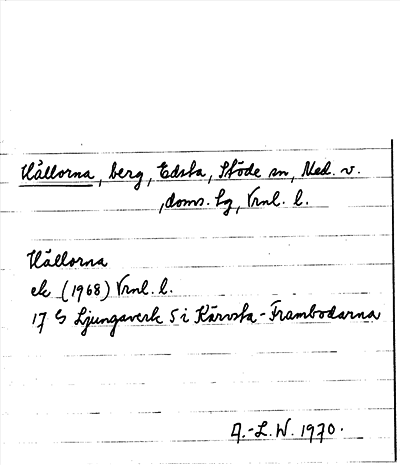 Hällorna, berg, Edsta, Stöde sn, Med. v.
, doms. hg, Vrnl. l.
Hällorna
ek (1968) Vrnl. l.
17 G Ljungaverk 5 i Kärvsta-Frambodarna
A.-L. W. 1970.